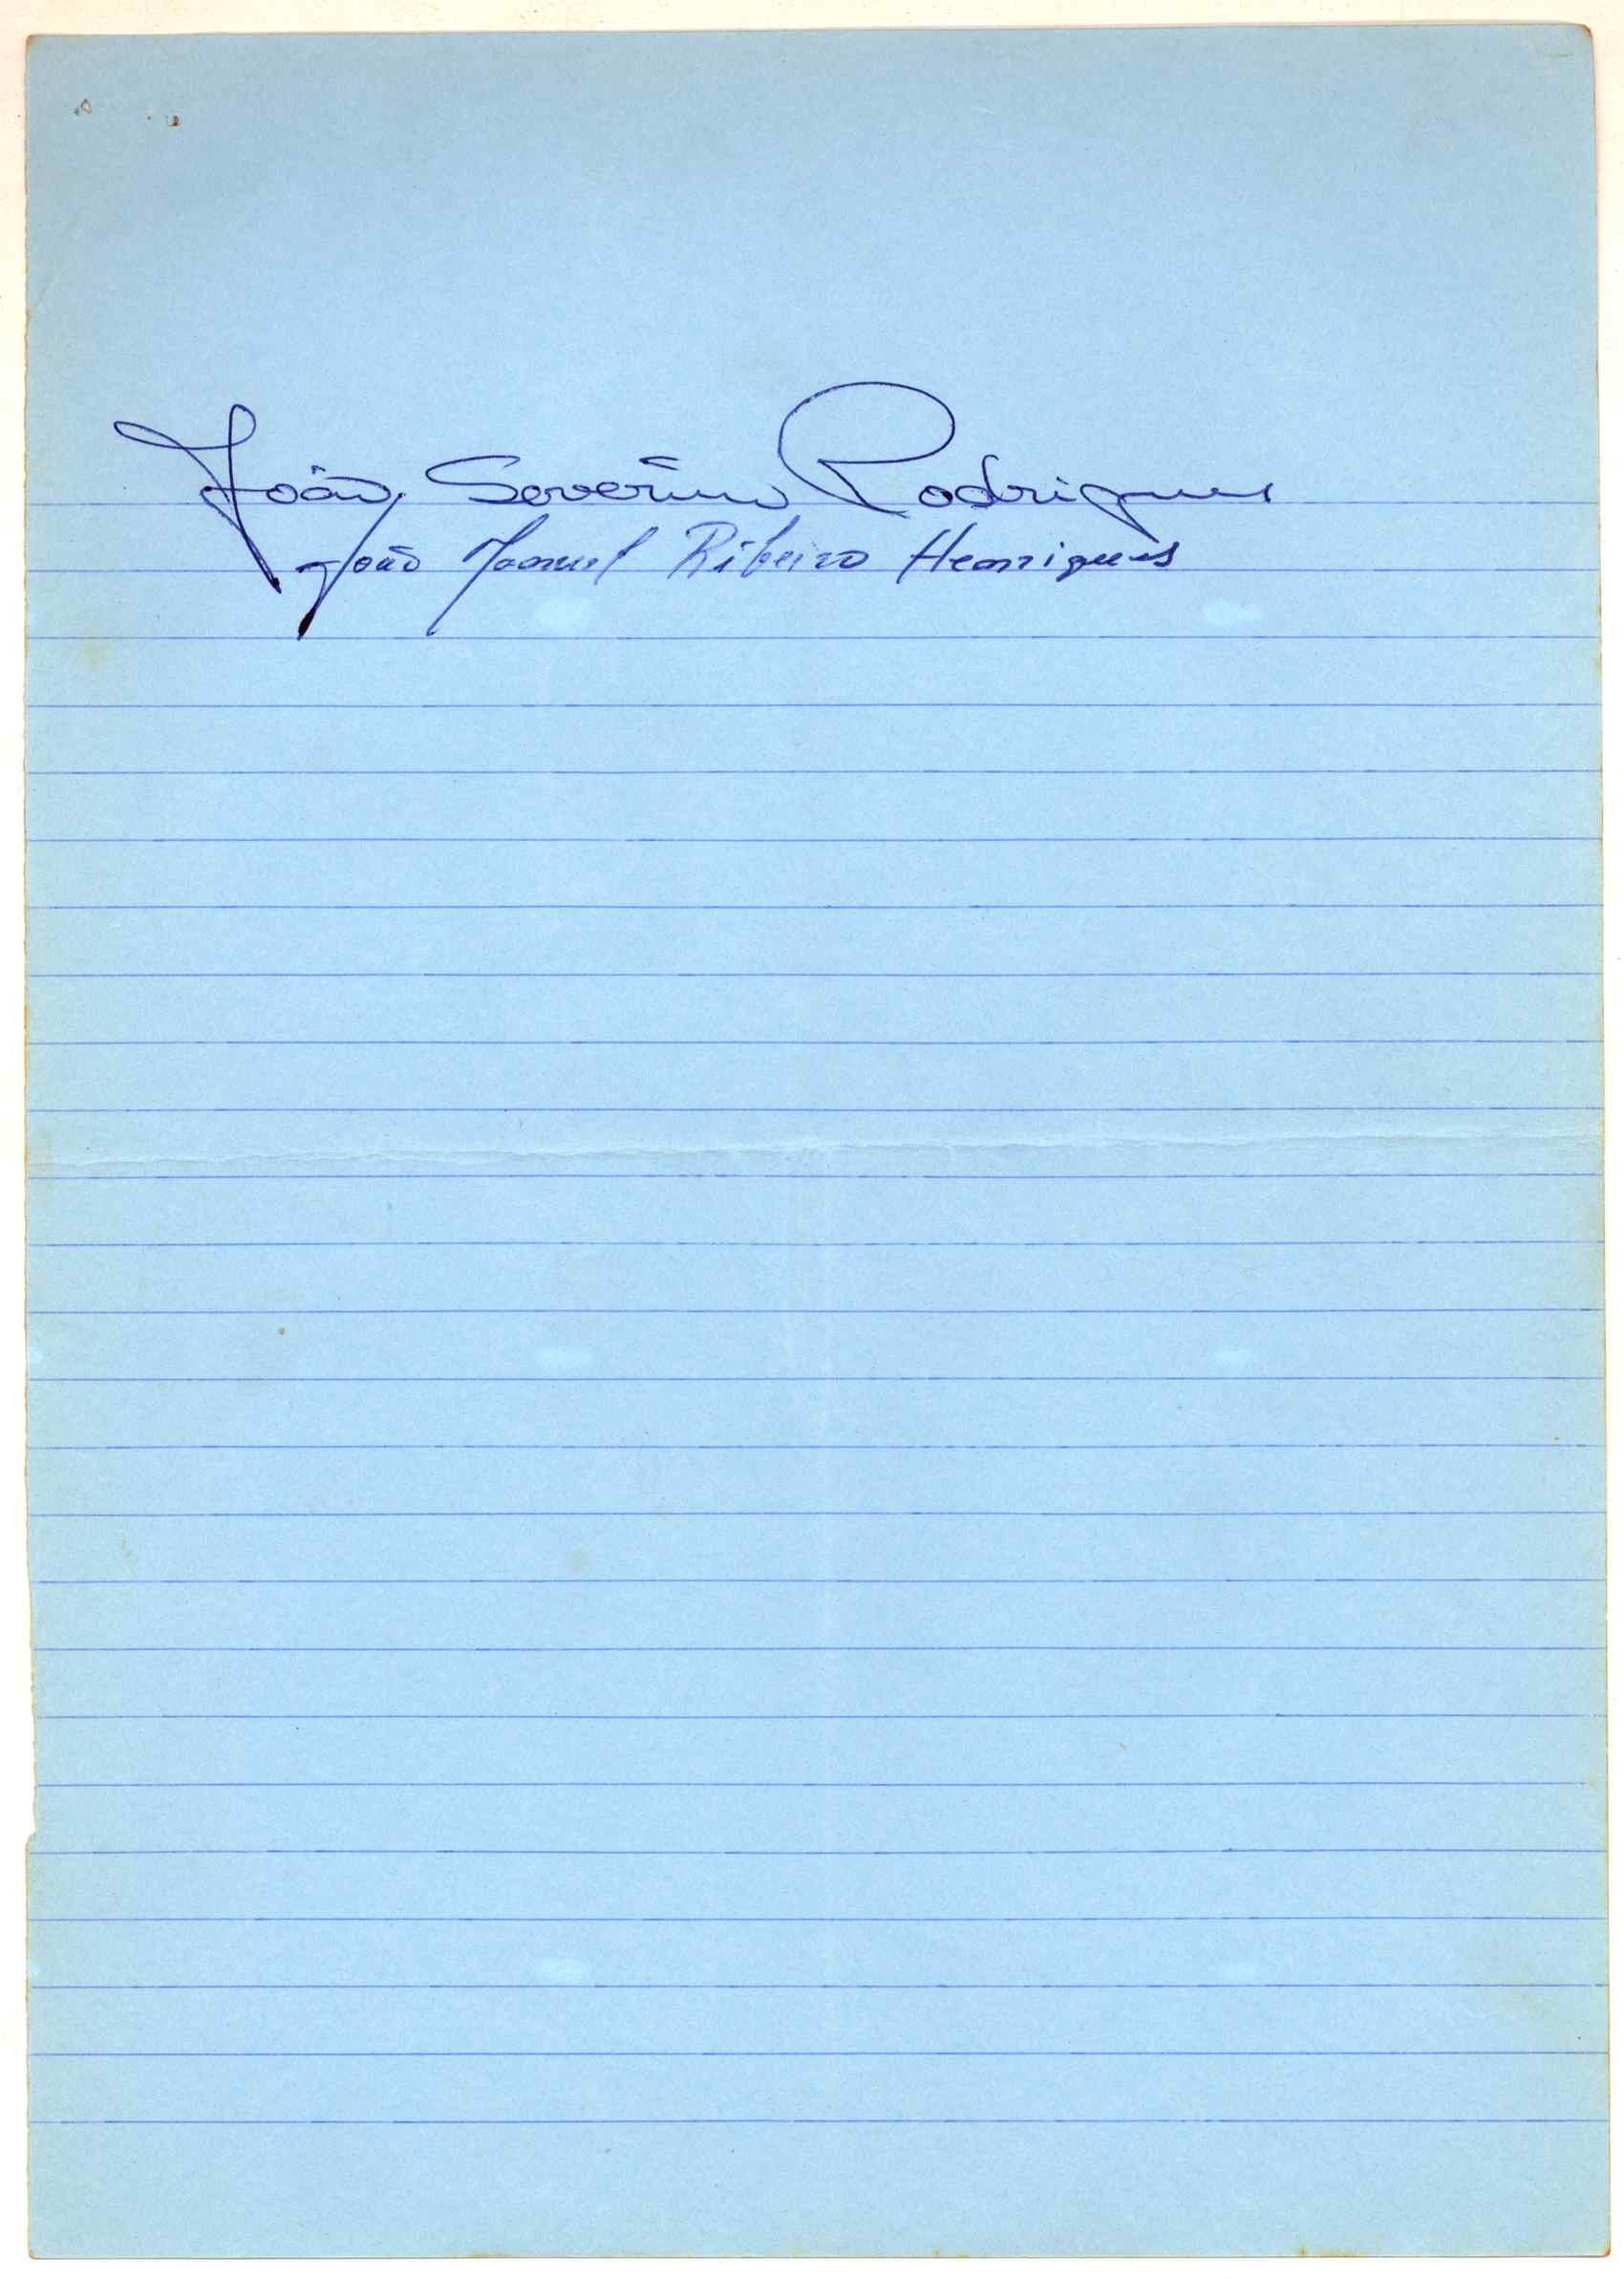 João Severino Rodrigues
João Manuel Ribeiro Henriques